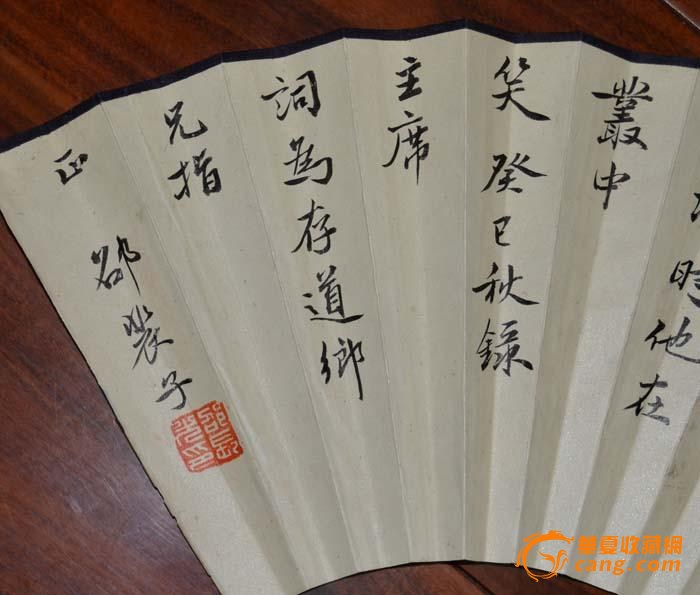 時他在
叢中
笑癸巳秋錄
主席
詞為存道鄉
兄指
正
邵裴子
邵長光印
華夏收藏網
cang.com